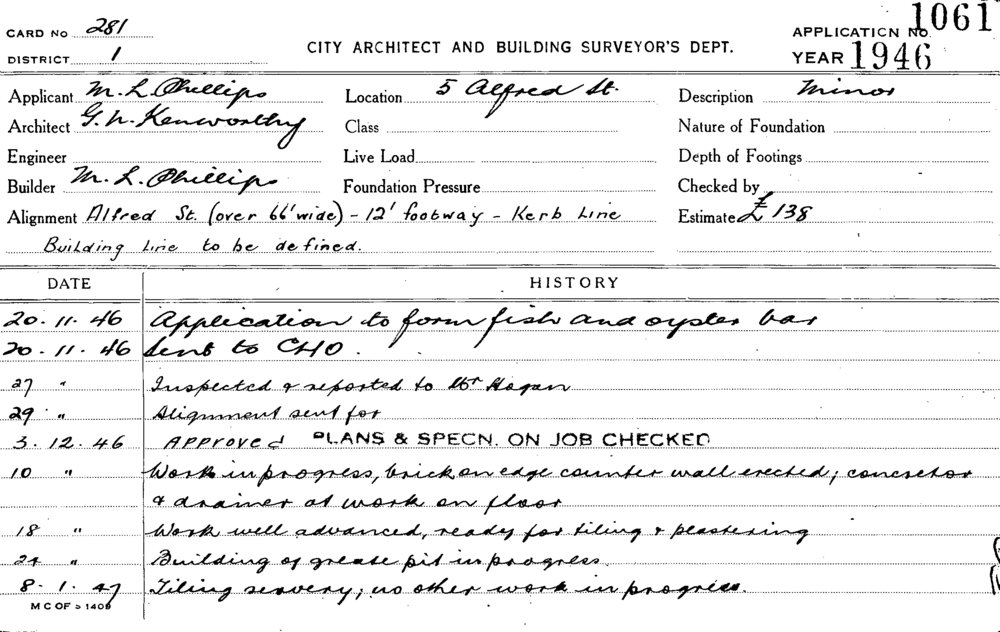 CARD NO 281
DISTRICT 1
CITY ARCHITECT AND BUILDING SURVEYOR'S DEPT.
APPLICATION NO. 1061
YEAR 1946
Applicant M. L. Phillips
Location 5 Alfred St.
Description Minor
Architect G. N. Kenworthy
Class
Nature of Foundation
Engineer
Live Load
Depth of Footings
Builder M. L. Phillips
Foundation Pressure
Checked by
Alignment Alfred St. (over 66' wide) - 12' footway - Kerb Line
Estimate £ 138
Building Line to be defined.
DATE HISTORY
20. 11. 46 Application to form fish and oyster bar
20. 11. 46 Sent to CHO.
27 " Inspected & reported to Mr Hogan
29 " Alignment sent for
3. 12. 46 Approved PLANS & SPECN. ON JOB CHECKED
10 " Work in progress, brick on edge counter wall erected; concretor
& drainer at work on floor
18 " Work well advanced, ready for tiling & plastering
24 " Building of grease pit in progress.
8. 1. 47 Tiling servery; no other work in progress.